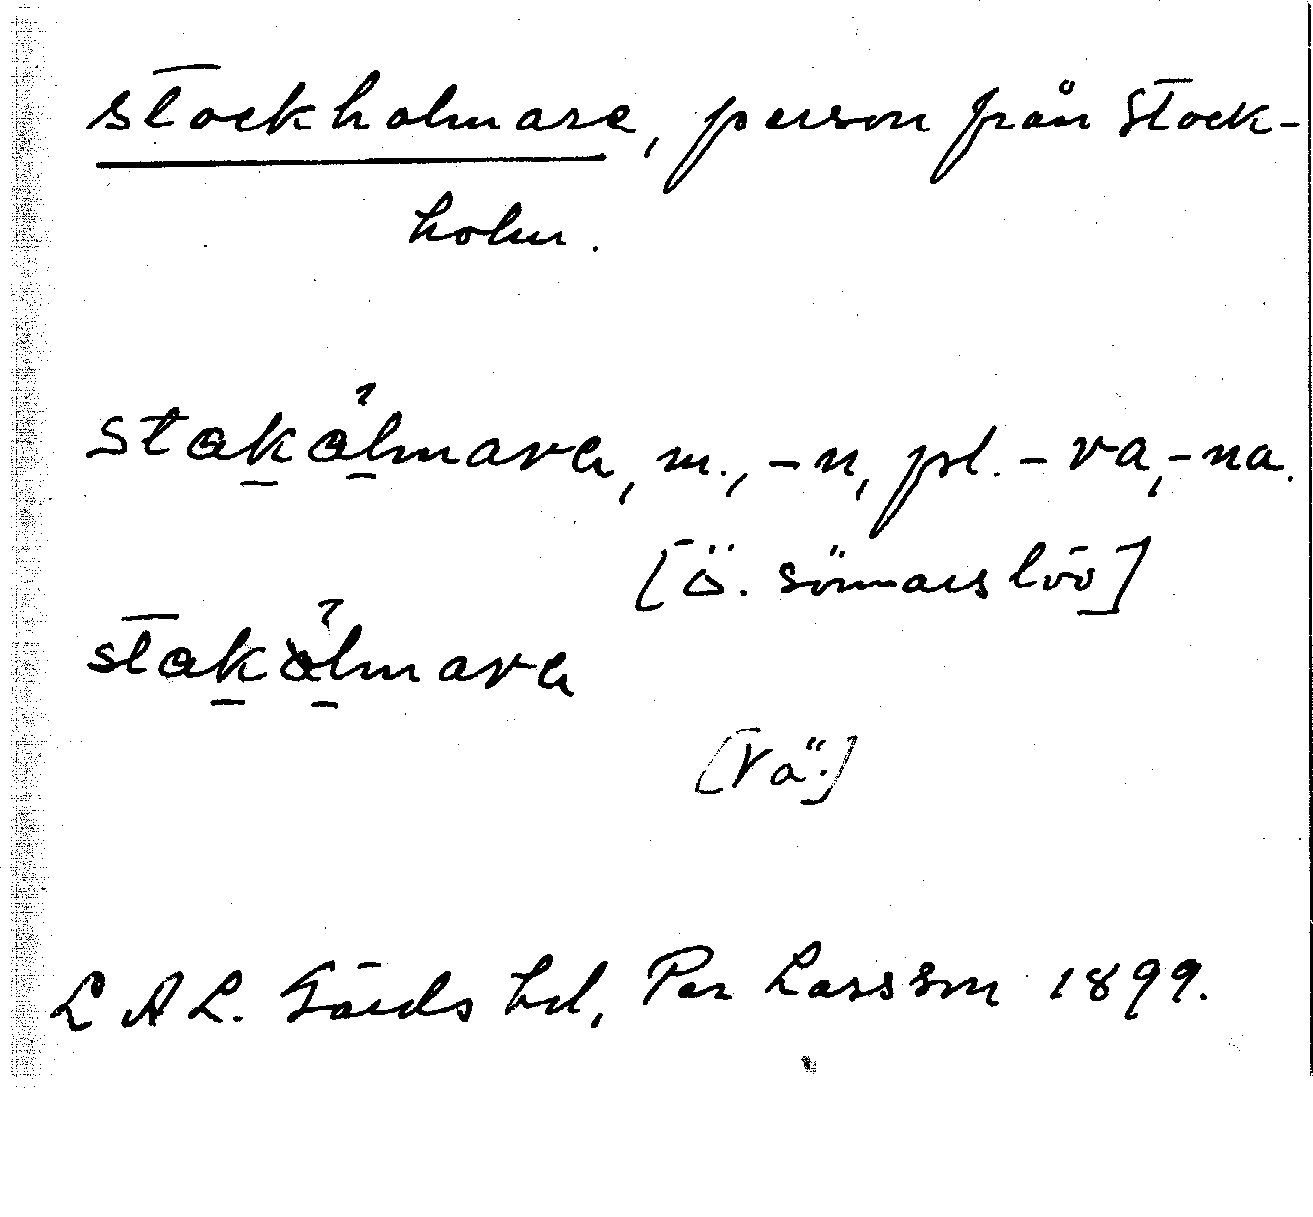 stockholmare, person från Stock-
holm.
stakålmara, m., -n, pl. -ra, -na.
[Ö. Sönnarslöv]
stakålmara
[Vä.]
L A L. Gärds hd, Per Larsson 1899.